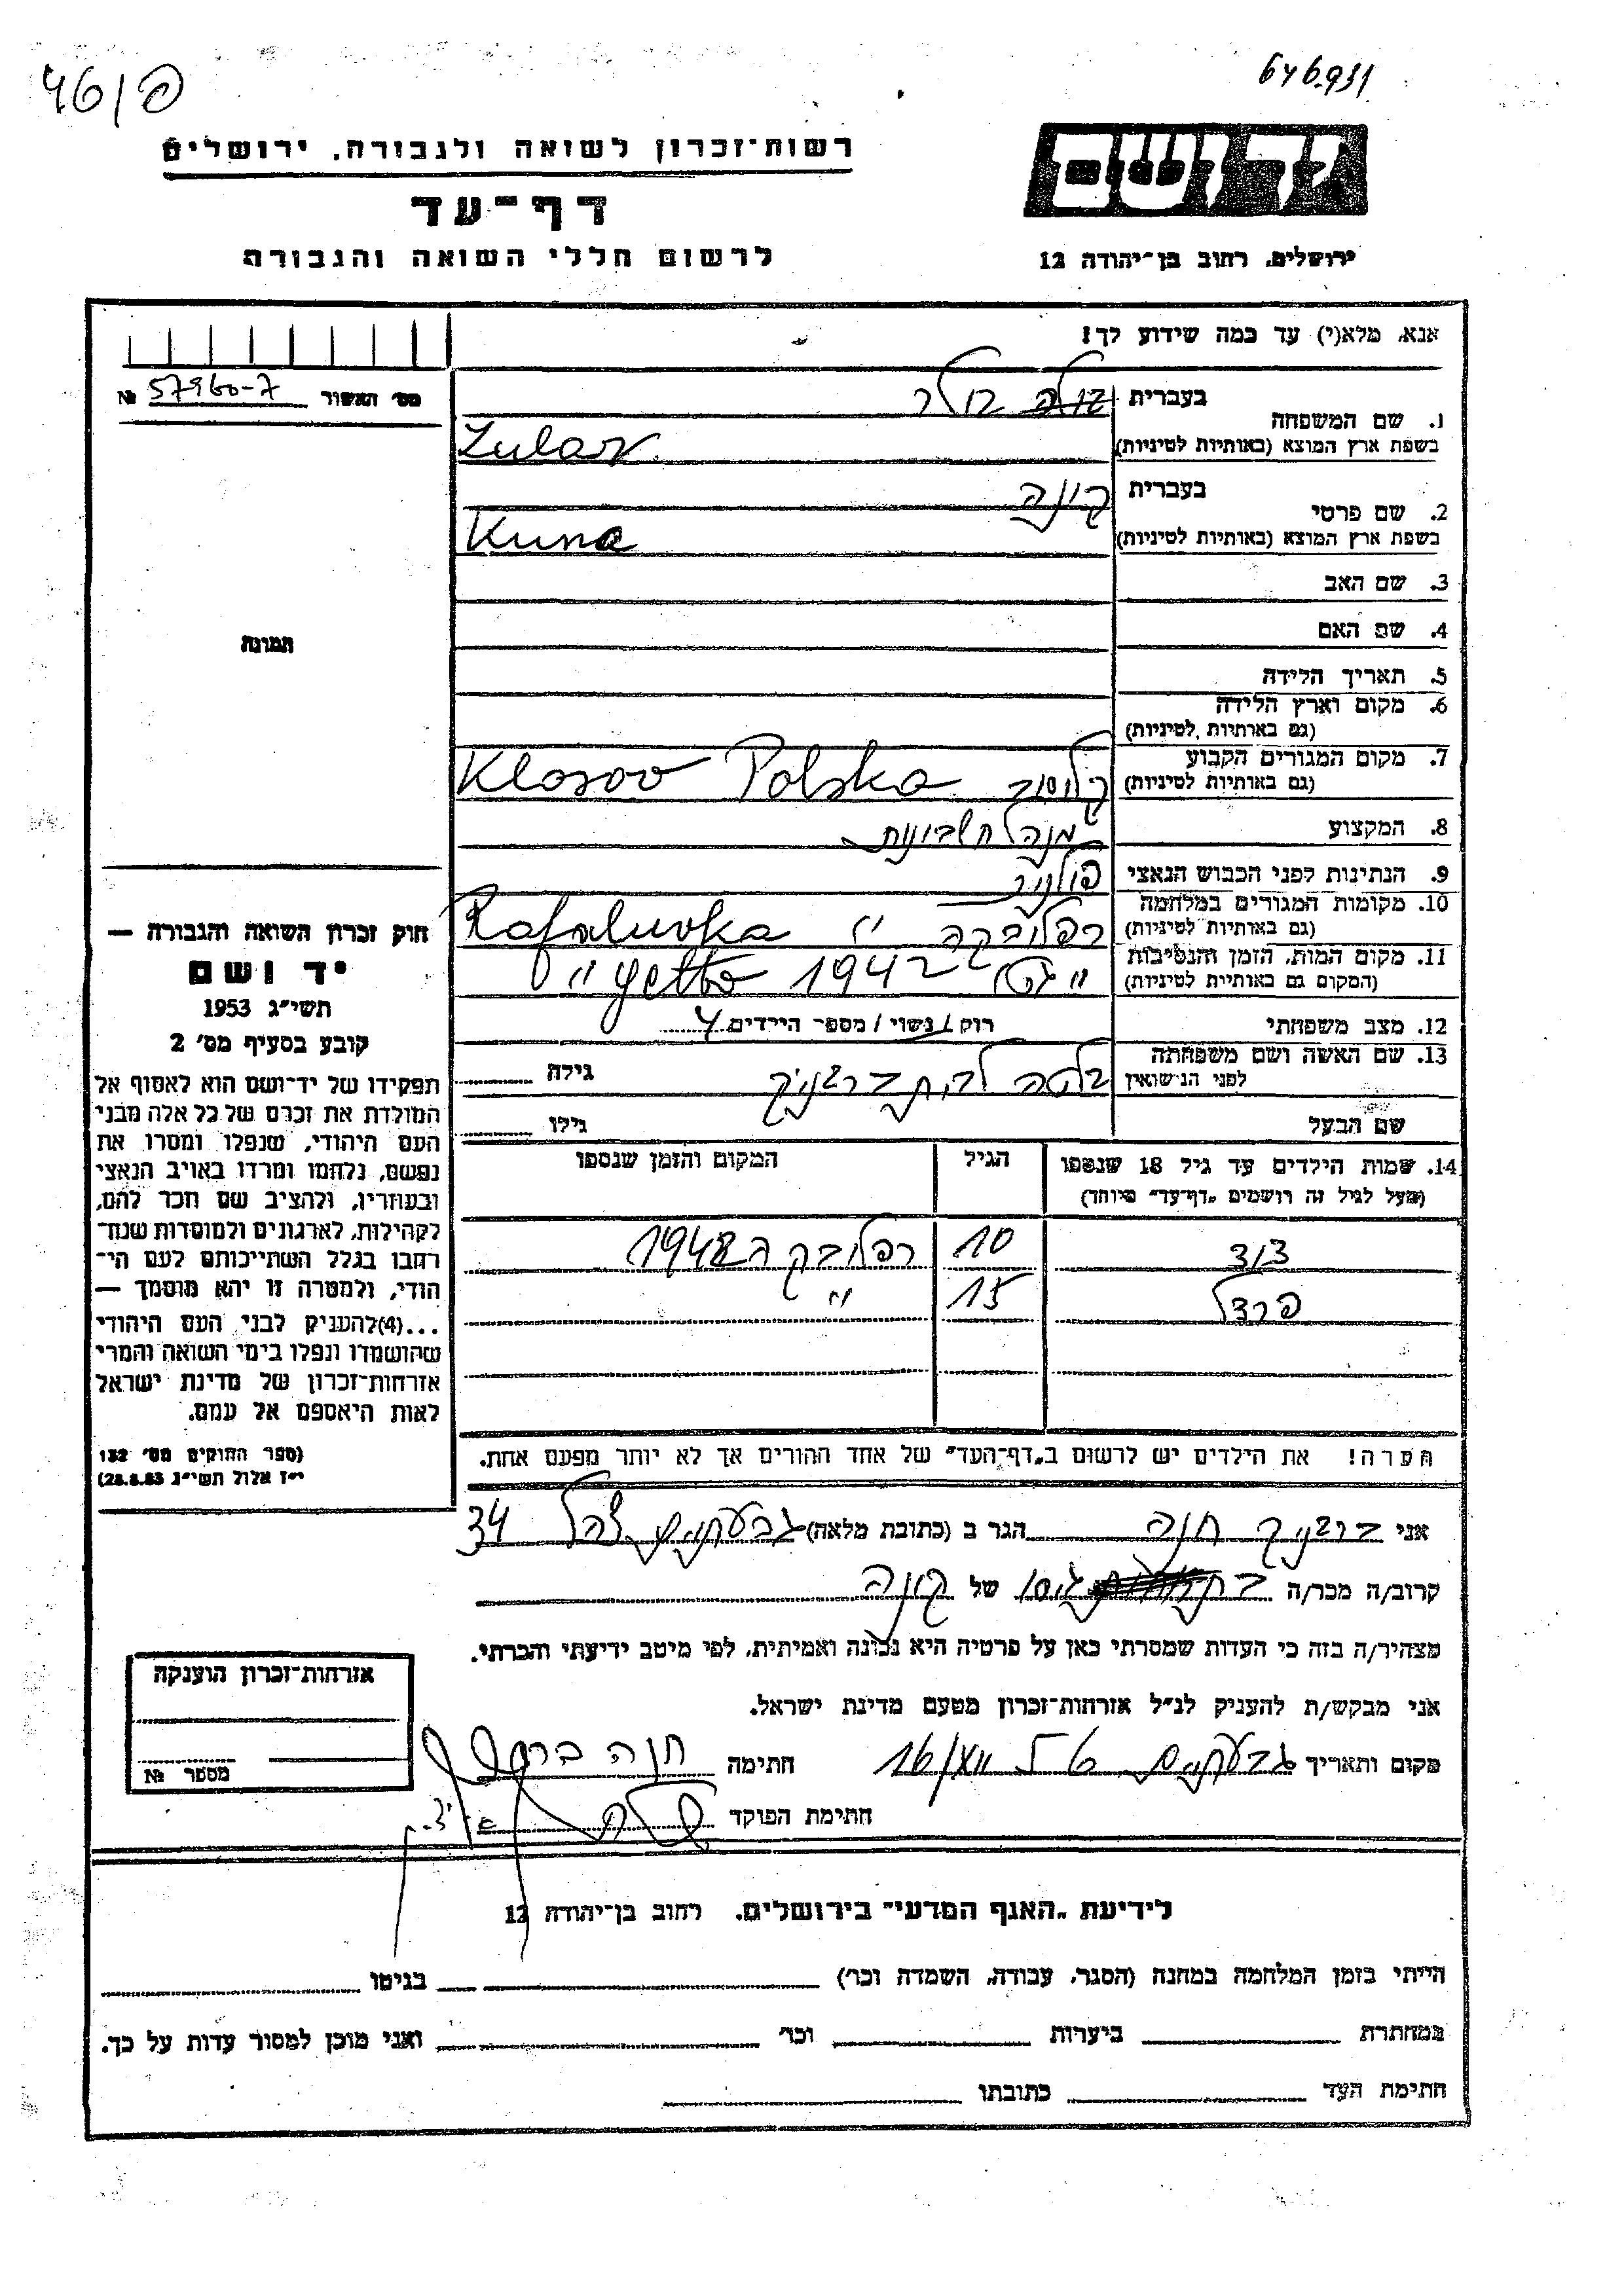 46/פ
646931
רשות-זכרון לשואה ולגבורה. ירושלים
דף-עד
לרשום חללי השואה והגבורה
יד ושם
ירושלים, רחוב בן-יהודה 12
אנא, מלא(י) עד כמה שידוע לך!
מס׳ האשור 57960-7 №
1. שם המשפחה
בעברית
בשפת ארץ המוצא (באותיות לטיניות) Zular
2. שם פרטי
בעברית קונה
בשפת ארץ המוצא (באותיות לטיניות) Kuna
3. שם האב
4. שם האם
תמונה
5. תאריך הלידה
6. מקום וארץ הלידה
(גם באותיות לטיניות)
7. מקום המגורים הקבוע
(גם באותיות לטיניות) קלוסוב Klosov Polska
8. המקצוע מנהל חשבונות
9. הנתינות לפני הכבוש הנאצי פולנית
10. מקומות המגורים במלחמה
(גם באותיות לטיניות) רפלובקה " Rafaluvka
11. מקום המות, הזמן והנסיבות
(המקום גם באותיות לטיניות) 1942 getto "
12. מצב משפחתי רוק / נשוי / מספר הילדים 4
13. שם האשה ושם משפחתה
לפני הנישואין ברזניק גילה
שם הבעל גילו
14. שמות הילדים עד גיל 18 שנספו
(מעל לגיל זה רושמים "דף-עד" מיוחד)
הגיל
המקום והזמן שנספו
10 רפלובקה 1942
פרדל 15 "
הערה! את הילדים יש לרשום ב"דף-העד" של אחד ההורים אך לא יותר מפעם אחת.
חוק זכרון השואה והגבורה —
יד ושם
תשי״ג 1953
קובע בסעיף מס׳ 2
תפקידו של יד-ושם הוא לאסוף אל
המולדת את זכרם של כל אלה מבני
העם היהודי, שנפלו ומסרו את
נפשם, נלחמו ומרדו באויב הנאצי
ובעוזריו, ולהציב שם וזכר להם,
לקהילות, לארגונים ולמוסדות שנח-
רבו בגלל השתייכותם לעם הי-
הודי, ולמטרה זו יהא מוסמך —
...(4) להעניק לבני העם היהודי
שהושמדו ונפלו בימי השואה והמרי
אזרחות-זכרון של מדינת ישראל
לאות היאספם אל עמם.
(ספר החוקים מס׳ 132
י״ז אלול תשי״ג 28.8.53)
אני ברזניק חנה הגר ב (כתובת מלאה) גבעתיים צה״ל 34
קרוב/ה מכר/ה גיסו של קונה
מצהיר/ה בזה כי העדות שמסרתי כאן על פרטיה היא נכונה ואמיתית, לפי מיטב ידיעתי והכרתי.
אני מבקש/ת להעניק לנ״ל אזרחות-זכרון מטעם מדינת ישראל.
מקום ותאריך גבעתיים 16/XII חתימה חנה
חתימת הפוקד
אזרחות-זכרון הוענקה
מספר №
לידיעת "האגף המדעי" בירושלים. רחוב בן-יהודה 12
הייתי בזמן המלחמה במחנה (הסגר, עבודה, השמדה וכו׳) בגיטו
במחתרת ביערות וכו׳ ואני מוכן למסור עדות על כך.
חתימת העד כתובתו